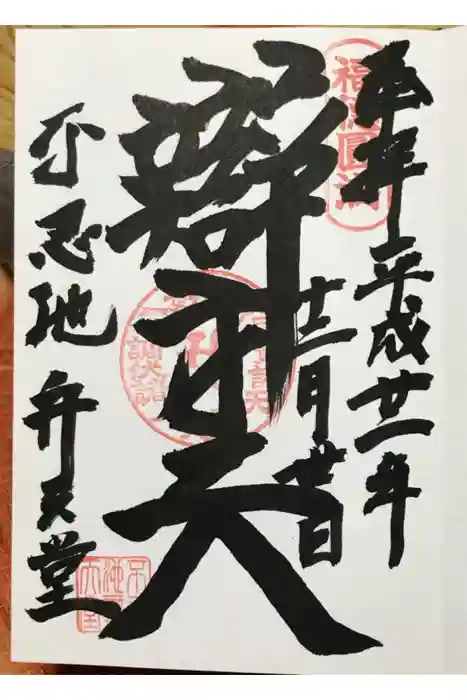 奉拜 平成廿一年
十二月 日
辯才天
不忍池 弁天堂